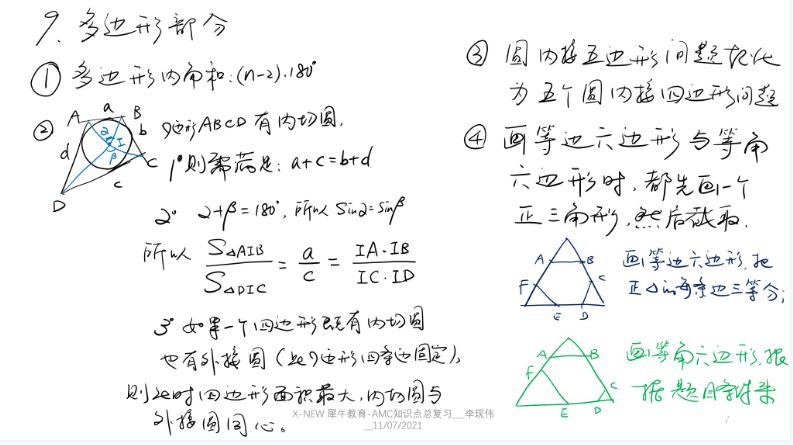 9、多边形部分
① 多边形内角和:(n-2)·180°
② 四边形ABCD有内切圆,
A a B
b
d
α I
β
C
c
D
1° 则需满足: a+c=b+d
2° α+β=180°, 所以 Sinα=Sinβ
所以 S△AIB / S△DIC = a / c = IA·IB / IC·ID
3° 如果一个四边形既有内切圆
也有外接圆(此四边形四条边固定),
则此时四边形面积最大,内切圆与
外接圆同心。
③ 圆内接五边形问题转化
为五个圆内接四边形问题
④ 画等边六边形与等角
六边形时,都先画一个
正三角形,然后截取.
A B
F C
E D
画等边六边形,把
正△的每条边三等分;
A B
F C
E D
画等角六边形,根
据题目条件来
X-NEW 犀牛教育-AMC知识点总复习__李现伟
__11/07/2021